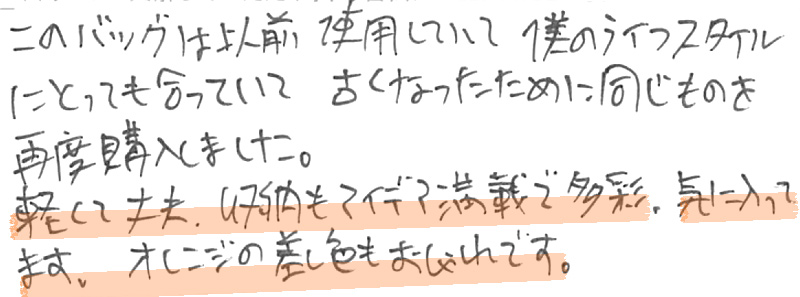 このバッグは以前 使用していて 僕のライフスタイル
にとっても合っていて 古くなったために同じものを
再度購入しました。
軽くて丈夫、収納もアイデア満載で多彩、気に入って
ます、オレンジの差し色もおしゃれです。